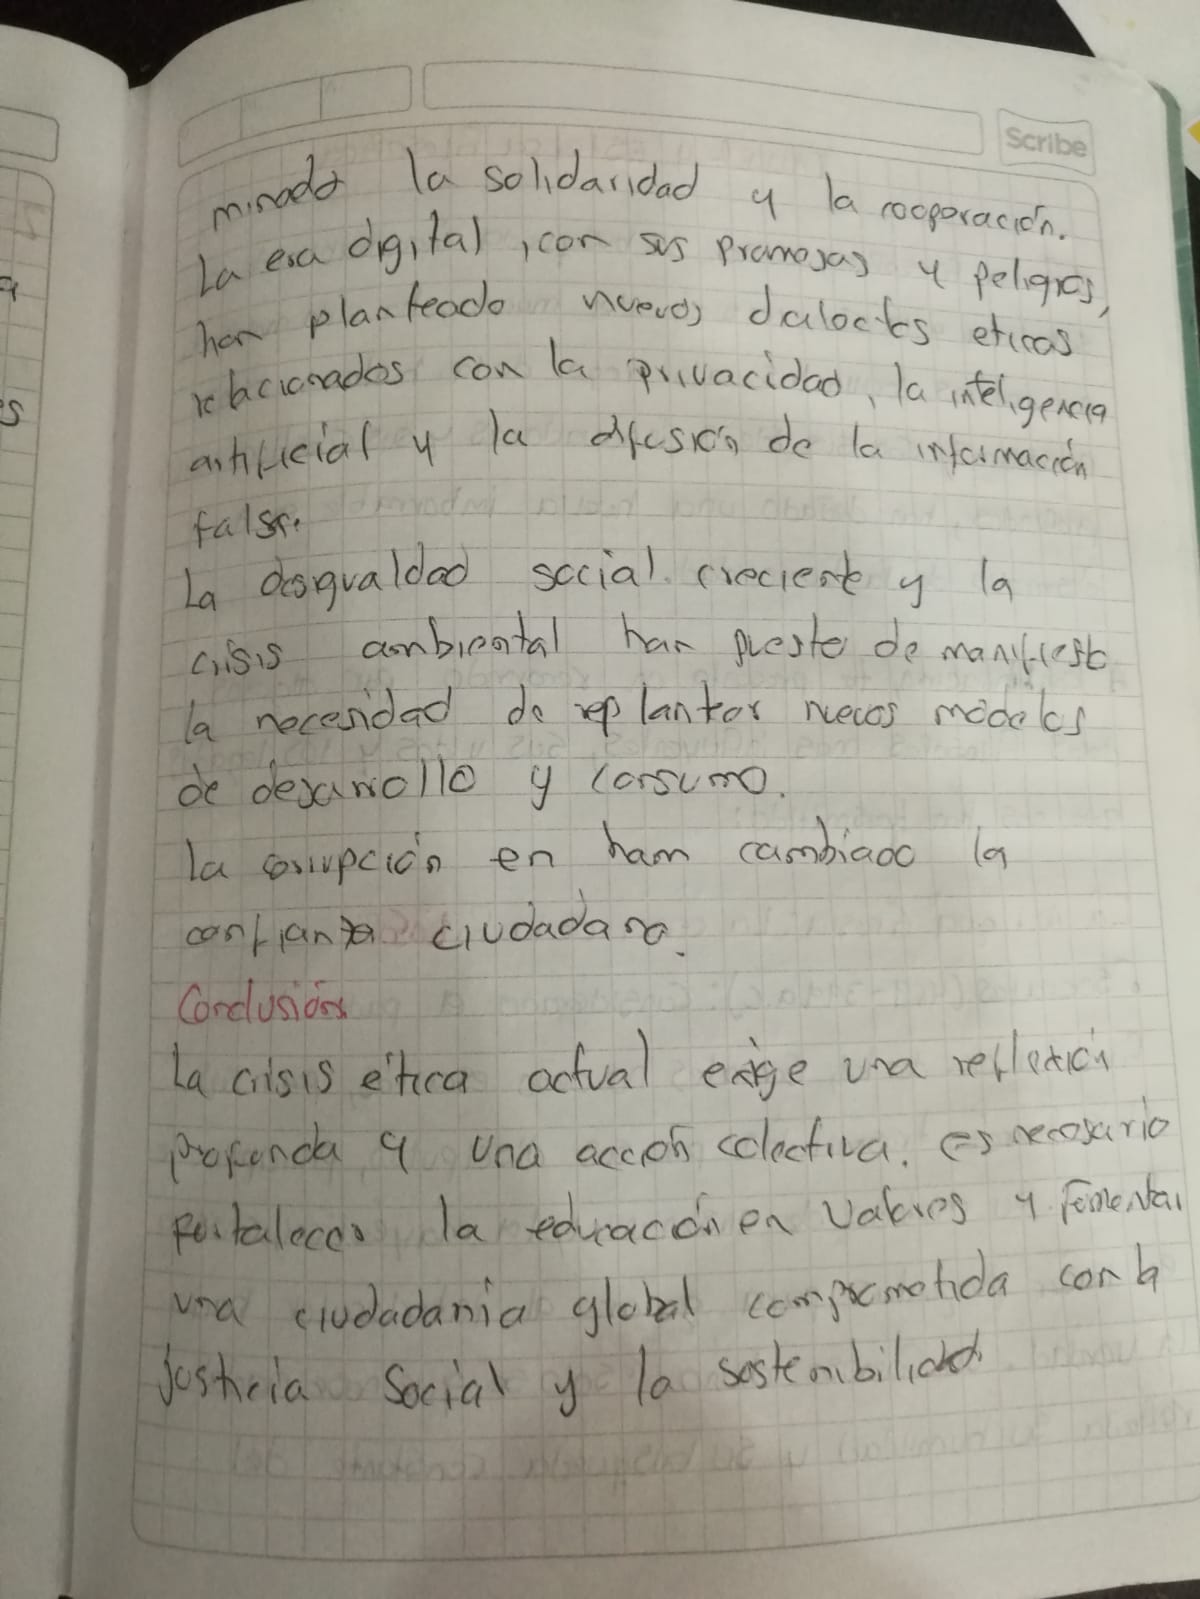 Scribe
minado la solidaridad y la cooperación.
La era digital, con sus promesas y peligros,
han planteado nuevos dalocks eticas
relacionados con la privacidad, la inteligencia
artificial y la difusión de la información
falsa.
La desigualdad social creciente y la
crisis ambiental han puesto de manifiesto
la necesidad de replantar nuevos modelos
de desarrollo y consumo.
la corrupción en ham cambiado la
confianza ciudadana.
Conclusión
La crisis ética actual exige una reflexión
profunda y una acción colectiva. es necesario
fortalecer la educación en valores y fomentar
una ciudadanía global comprometida con la
justicia social y la sostenibilidad